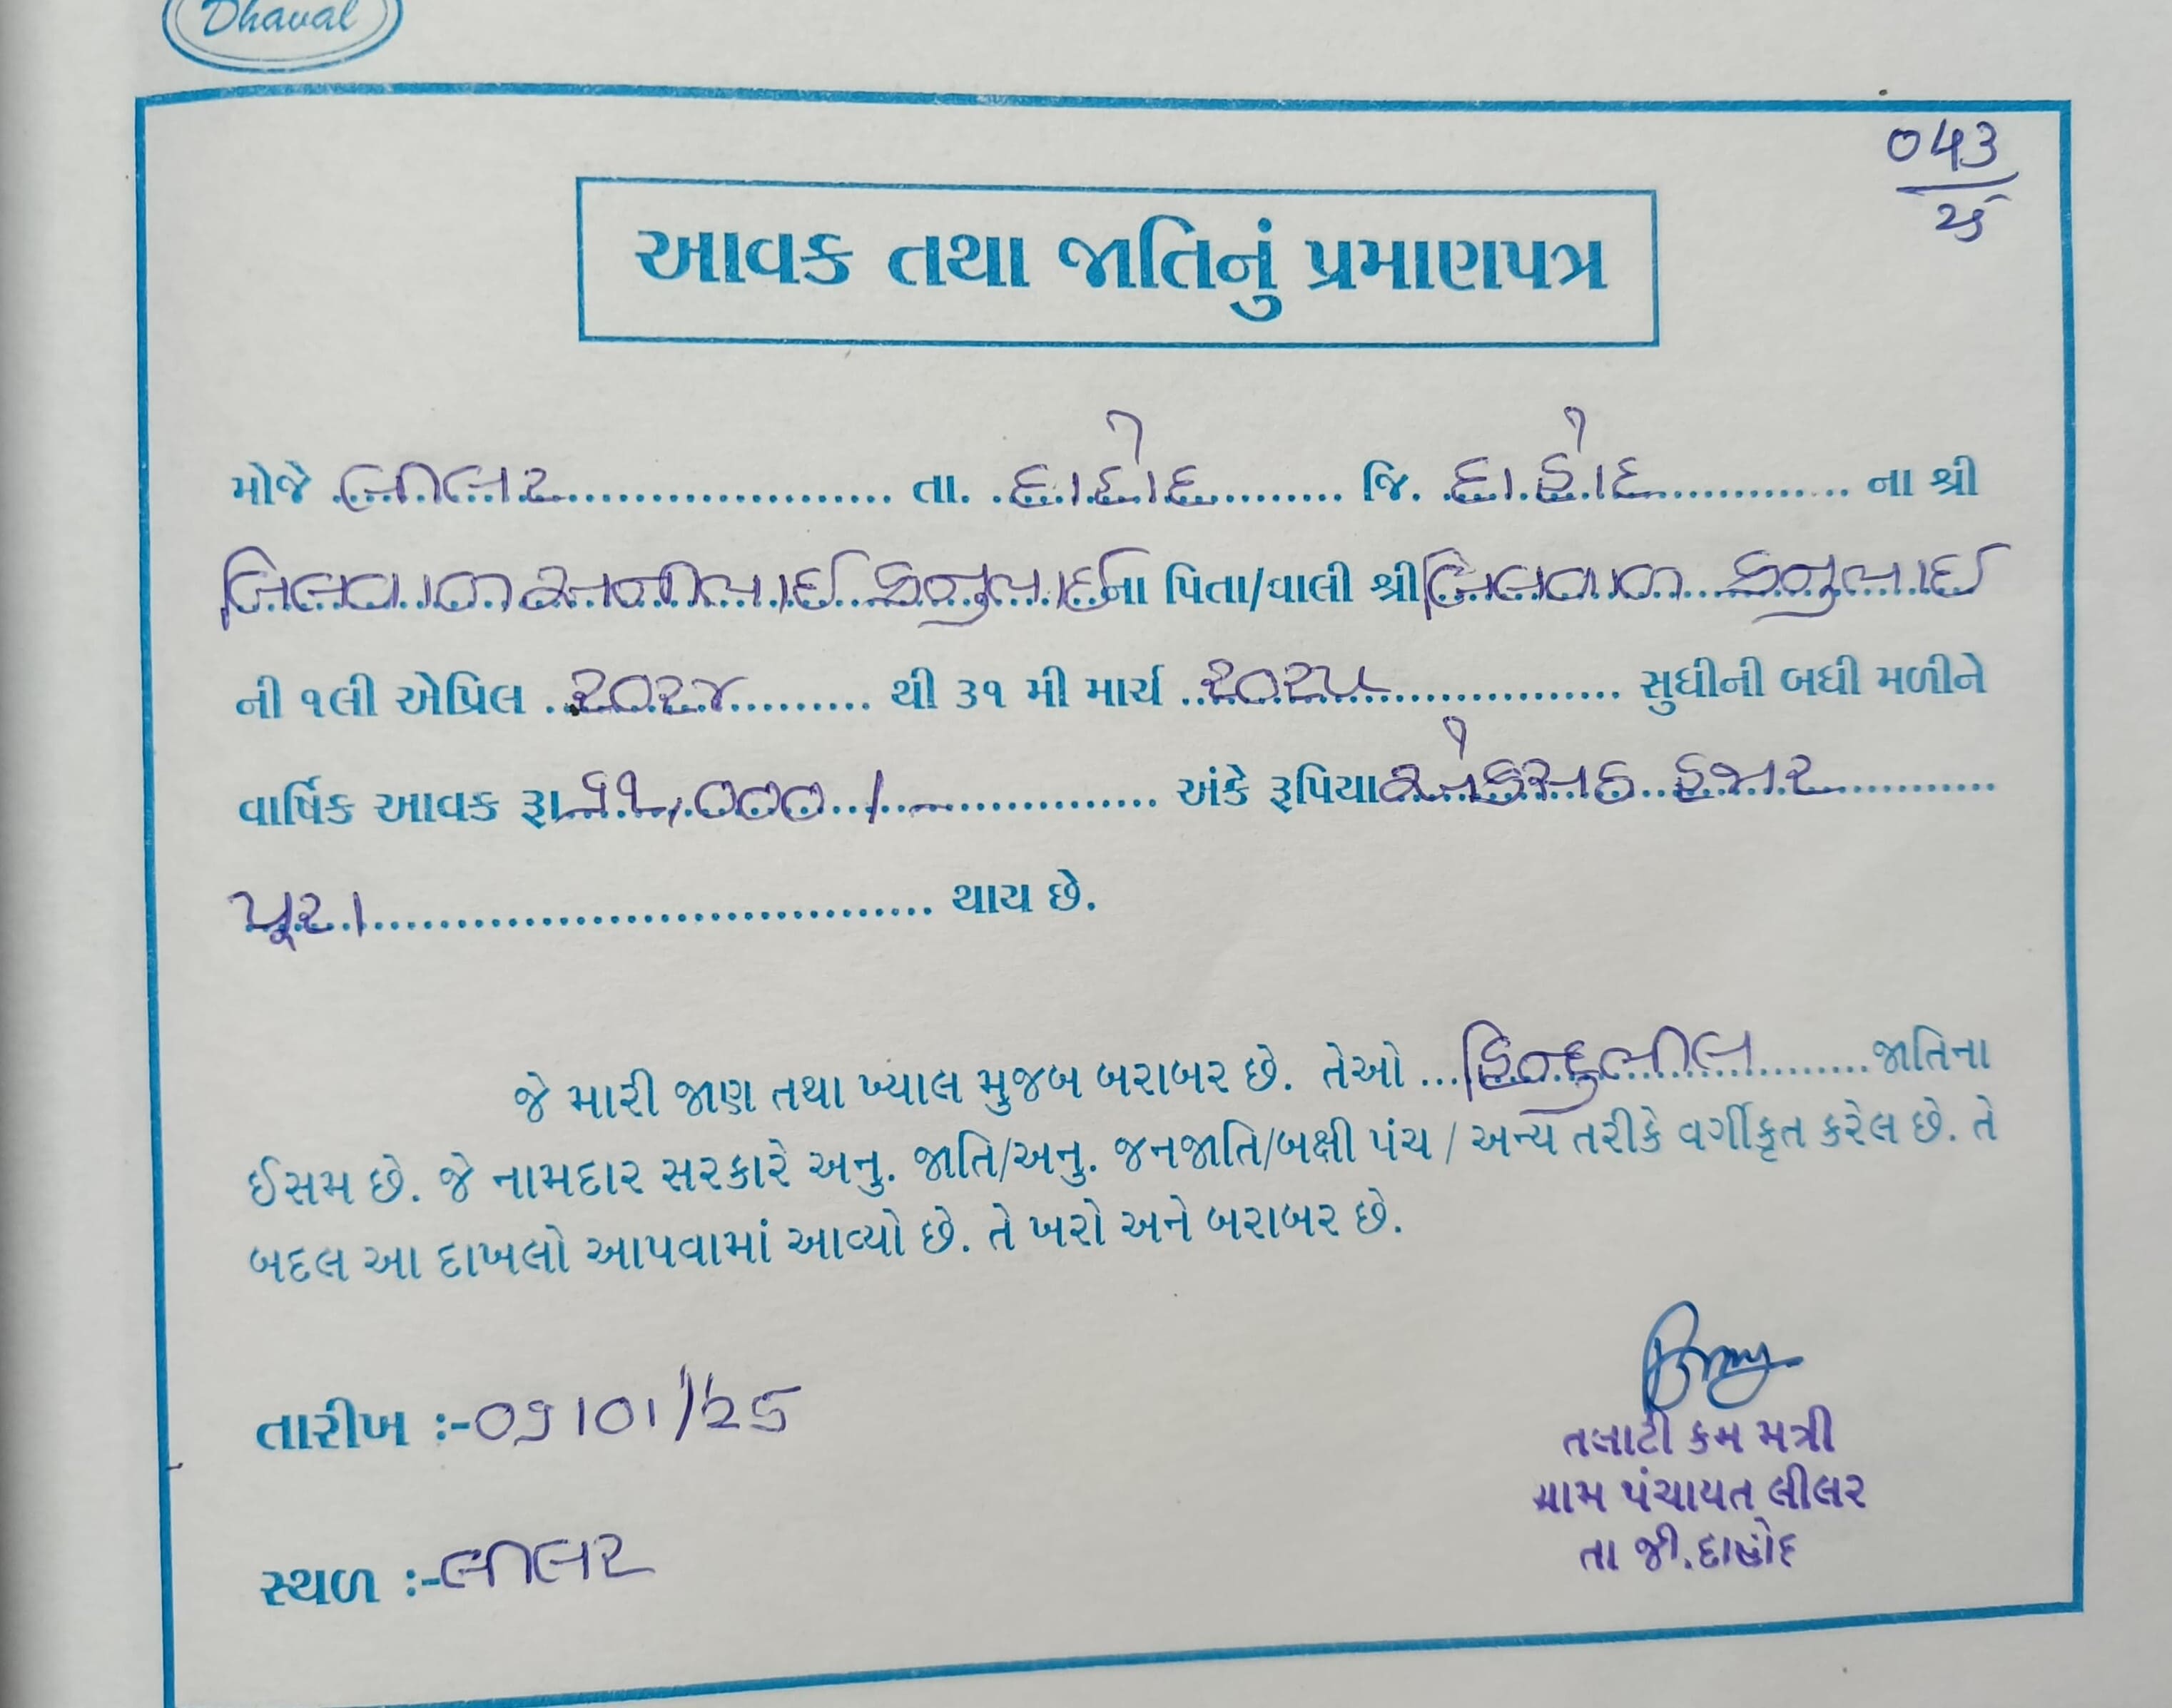 Dhaval
043
25
આવક તથા જાતિનું પ્રમાણપત્ર
મોજે લીલર તા. દાહોદ જિ. દાહોદ ના શ્રી
બિલવાળ અનીલભાઈ છનુભાઈ ના પિતા/વાલી શ્રી બિલવાળ છનુભાઈ
ની ૧લી એપ્રિલ ૨૦૨૪ થી ૩૧ મી માર્ચ ૨૦૨૫ સુધીની બધી મળીને
વાર્ષિક આવક રૂા ૬૧,૦૦૦/- અંકે રૂપિયા એકસઠ હજાર
પૂરા થાય છે.
જે મારી જાણ તથા ખ્યાલ મુજબ બરાબર છે. તેઓ હિન્દુ ભીલ જાતિના
ઈસમ છે. જે નામદાર સરકારે અનુ. જાતિ/અનુ. જનજાતિ/બક્ષી પંચ / અન્ય તરીકે વર્ગીકૃત કરેલ છે. તે
બદલ આ દાખલો આપવામાં આવ્યો છે. તે ખરો અને બરાબર છે.
તારીખ :- 09/01/25
તલાટી કમ મત્રી
ગ્રામ પંચાયત લીલર
તા જી.દાહોદ
સ્થળ :- લીલર